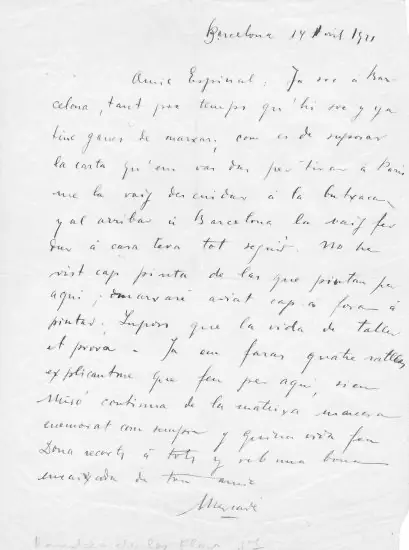 Barcelona 14 Abril 1921
Amic Espinal: Ja soc a Bar-
celona, tant poc temps qu'hi soc y ja
tinc ganes de marxar; com es de suposar
la carta qu'em vas dar per tirar á Paris
me la vaig descuidar á la butxaca
y al arribar á Barcelona la vaig fer
dur á casa teva tot seguit. No he
vist cap pinta de las que pintan per
aqui, marxaré aviat cap a fora á
pintar; Suposo que la vida de taller
et prova - Ja em faras quatre ratlles
explicantme que feu per aqui, si en
Miró continua de la mateixa manera
enamorat com sempre y quina vida feu
Dona recorts á tots y reb una bona
encaixada de ton amic